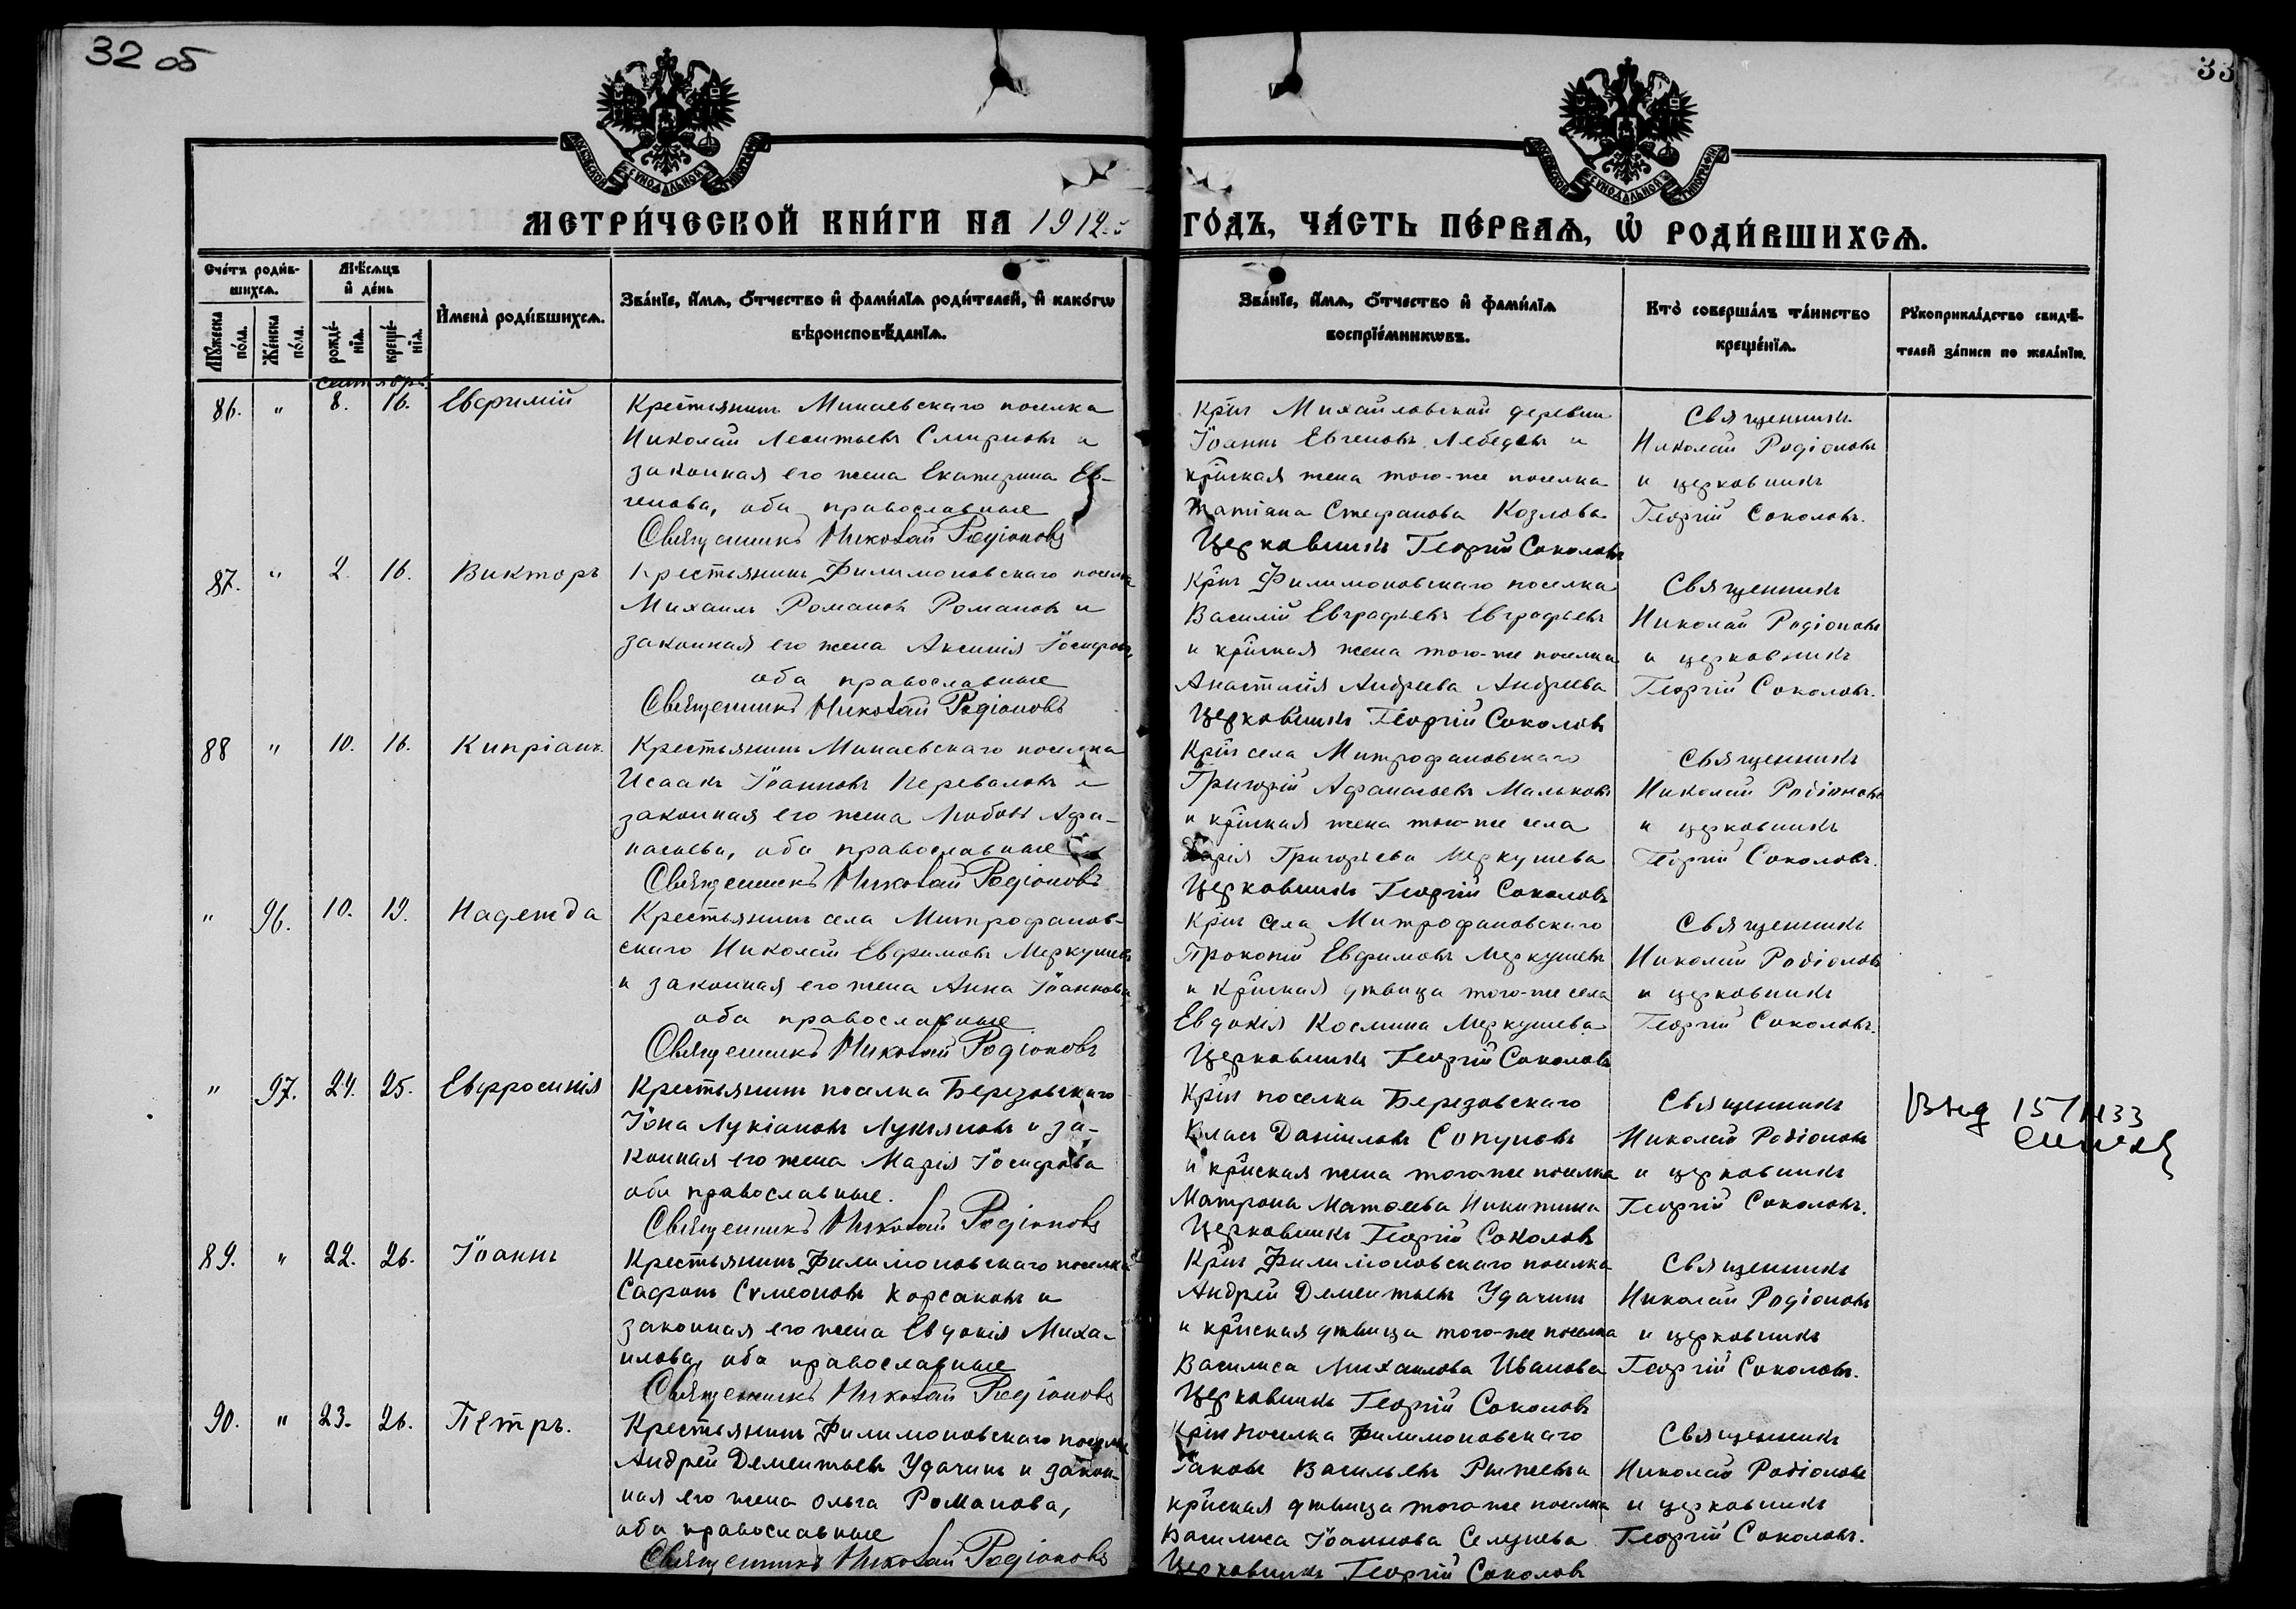 32 об
33
МОСКОВСКОЙ СѴНОДАЛЬНОЙ ТИПОГРАФІИ
МОСКОВСКОЙ СѴНОДАЛЬНОЙ ТИПОГРАФІИ
МЕТРИ́ЧЕСКОЙ КНИ́ГИ НА 1912
ГО́ДЪ, ЧА́СТЬ ПЕ́РВАѦ, Ѡ҆ РОДИ́ВШИХСѦ.
Сче́тъ роди́в-
шихсѧ.
Мѣ́сѧцъ
и҆ де́нь
Мꙋ́жеска
по́ла.
Же́нска
по́ла.
рожде́-
нїѧ.
креще́-
нїѧ.
И҆мена̀ роди́вшихсѧ.
Зва́нїе, и҆́мѧ, ѻ҆́тчество и҆ фами́лїѧ роди́телей, и҆ како́гѡ
вѣроисповѣ́данїѧ.
Зва́нїе, и҆́мѧ, ѻ҆́тчество и҆ фами́лїѧ
воспрїе́мникѡвъ.
Кто̀ соверша́лъ та́инство
креще́нїѧ.
Рꙋкоприкла́дство свидѣ́-
телей за́писи по жела́нїю.
сентябрь
86. " 8. 16. Евфимій
Крестьянинъ Минаевскаго поселка
Николай Леонтьевъ Смирновъ и
законная его жена Екатерина Ев-
генова, оба православные
Священникъ Николай Родіоновъ
Кр̃нъ Михайловской деревни
Іоаннъ Евгеновъ Лебедевъ и
кр̃нская жена того-же поселка
Татіана Стефанова Козлова
Церковникъ Георгій Соколовъ
Священникъ
Николай Родіоновъ
и церковникъ
Георгій Соколовъ.
87. " 2. 16. Викторъ
Крестьянинъ Филимоновскаго поселка
Михаилъ Романовъ Романовъ и
законная его жена Аксинія Іосифова,
оба православные
Священникъ Николай Родіоновъ
Кр̃нъ Филимоновскаго поселка
Василій Евграфьевъ Евграфьевъ
и кр̃нская жена того-же поселка
Анастасія Андреева Андреева
Церковникъ Георгій Соколовъ
Священникъ
Николай Родіоновъ
и церковникъ
Георгій Соколовъ.
88 " 10. 16. Кипріанъ.
Крестьянинъ Минаевскаго поселка
Исаакъ Іоанновъ Переваловъ и
законная его жена Любовь Афа-
насьева, оба православные
Священникъ Николай Родіоновъ
Кр̃нъ села Митрофановскаго
Григорій Афанасьевъ Мальковъ
и кр̃нская жена того-же села
Марія Григорьева Меркушева
Церковникъ Георгій Соколовъ
Священникъ
Николай Родіоновъ
и церковникъ
Георгій Соколовъ.
" 96. 10. 19. Надежда
Крестьянинъ села Митрофанов-
скаго Николай Евфимовъ Меркушевъ
и законная его жена Анна Іоаннова,
оба православные
Священникъ Николай Родіоновъ
Кр̃нъ села Митрофановскаго
Прокопій Евфимовъ Меркушевъ
и кр̃нская дѣвица того-же села
Евдокія Космина Меркушева
Церковникъ Георгій Соколовъ
Священникъ
Николай Родіоновъ
и церковникъ
Георгій Соколовъ.
" 97. 24. 25. Евфросинія
Крестьянинъ поселка Березовскаго
Іона Лукіановъ Лукьяновъ и за-
конная его жена Марія Іосифова
оба православные.
Священникъ Николай Родіоновъ
Кр̃нъ поселка Березовскаго
Власъ Даніиловъ Сопуновъ
и кр̃нская жена того-же поселка
Матрона Матѳеева Никитина
Церковникъ Георгій Соколовъ
Священникъ
Николай Родіоновъ
и церковникъ
Георгій Соколовъ.
89. " 22. 26. Іоаннъ
Крестьянинъ Филимоновскаго поселка
Сафонъ Сѵмеоновъ Корсаковъ и
законная его жена Евдокія Миха-
илова, оба православные
Священникъ Николай Родіоновъ
Кр̃нъ Филимоновскаго поселка
Андрей Дементьевъ Удачинъ
и кр̃нская дѣвица того-же поселка
Василиса Михаилова Иванова
Церковникъ Георгій Соколовъ
Священникъ
Николай Родіоновъ
и церковникъ
Георгій Соколовъ.
90. " 23. 26. Петръ.
Крестьянинъ Филимоновскаго поселка
Андрей Дементьевъ Удачинъ и закон-
ная его жена Ольга Романова,
оба православные
Священникъ Николай Родіоновъ
Кр̃нъ поселка Филимоновскаго
Іаковъ Васильевъ Рыжевъ и
кр̃нская дѣвица того-же поселка
Василиса Іоаннова Селушева
Церковникъ Георгій Соколовъ
Священникъ
Николай Родіоновъ
и церковникъ
Георгій Соколовъ.